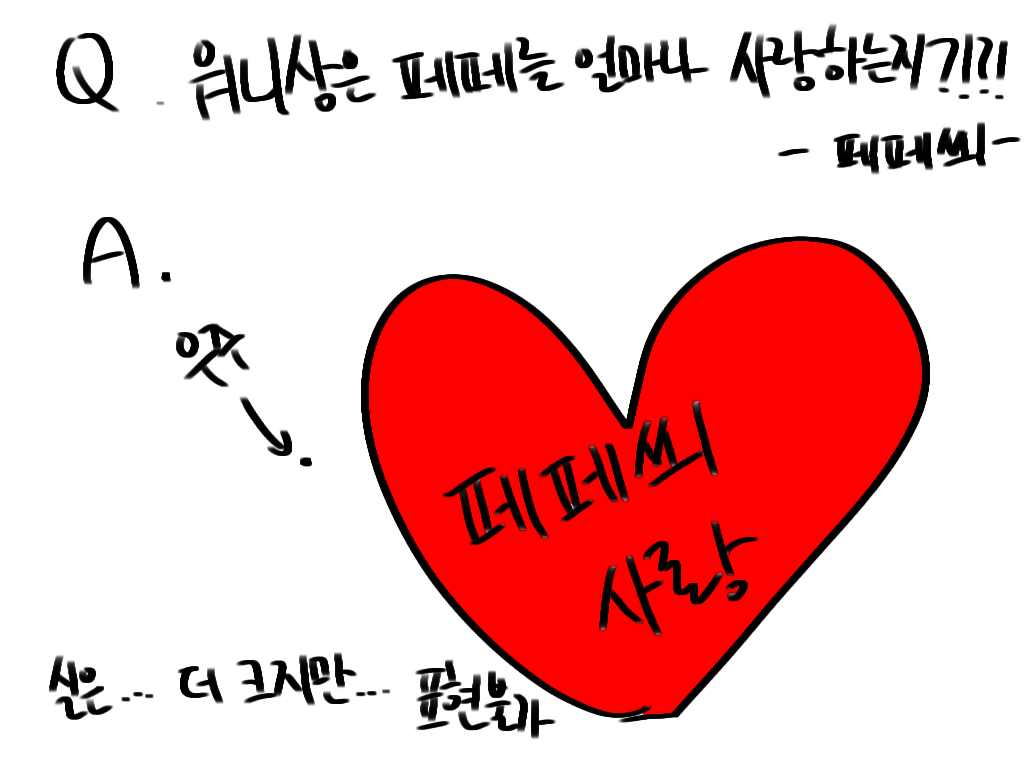 Q. 워니상은 페페를 얼마나 사랑하는지?!?!?!
- 페페씌 -
A.
페페씌
사랑
실은... 더 크지만... 표현불가